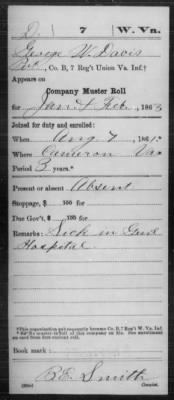 D. 7 W. Va.
George W. Davis
Pvt, Co. B, 7 Reg't Union Va. Inf.†
Appears on
Company Muster Roll
for Jan & Feb, 1863
Joined for duty and enrolled:
When Aug 7, 1861
Where Cameron Va
Period 3 years.*
Present or absent Absent
Stoppage, $ 100 for
Due Gov't, $ 100 for
Remarks: Sick in Genl
Hospital
†This organization subsequently became Co. B, 7 Reg't W. Va. Inf.
Book mark:
B. E. Smith
Copyist.